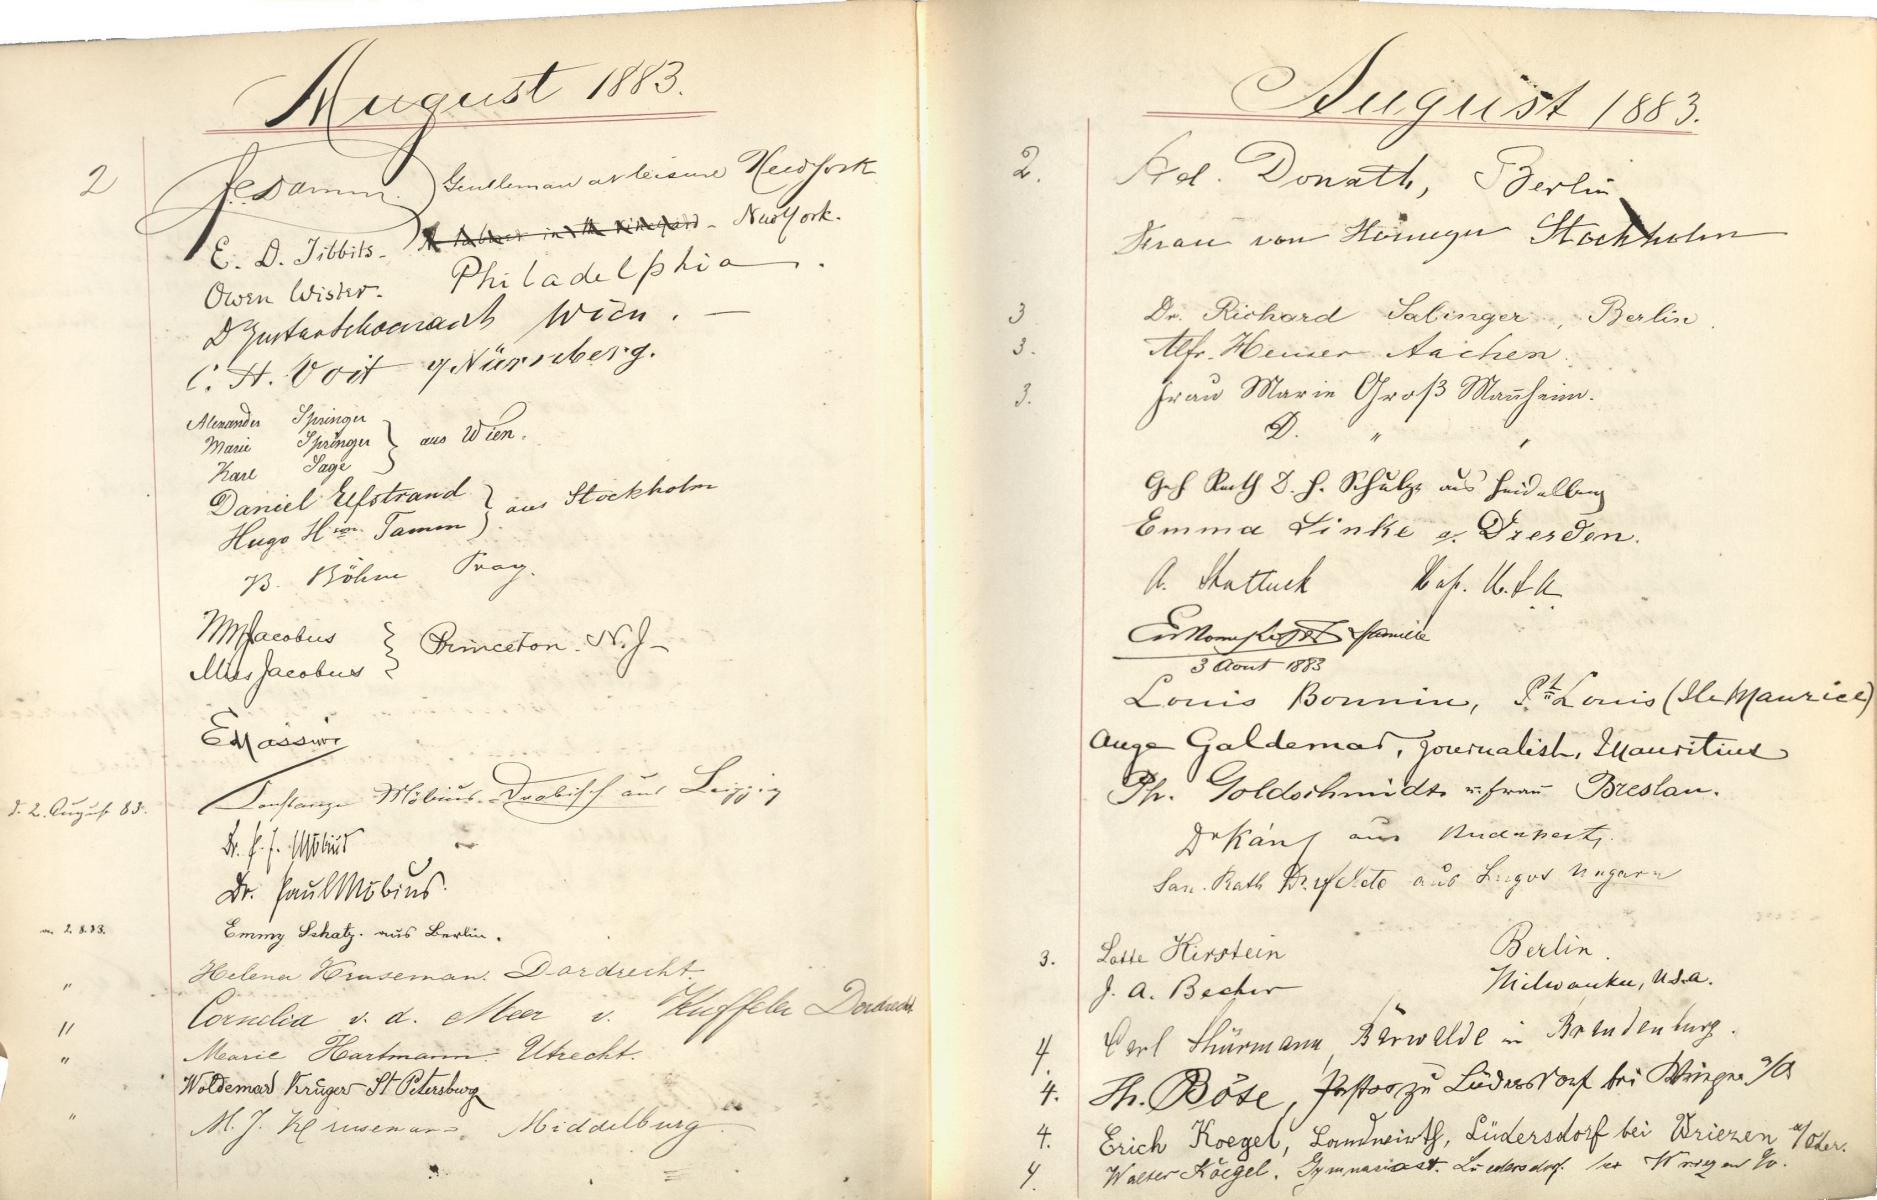 August 1883.
2 Gentleman at leisure New York
E. D. Tibbits - New York.
Owen Wister. Philadelphia.
Wien. —
C. H. Voit Nürnberg.
Alexander Springer
Marie Springer } aus Wien.
Karl Sage
Daniel Elfstrand } aus Stockholm
Hugo Hm Tamm
B. Böhm Prag.
Jacobus } Princeton. N. J —
Miss Jacobus
d. 2. August 83. Constanze Möbius-Drobisch aus Leipzig
Dr. Möbius
Dr. Paul Möbius.
2.8.83. Emmy Schatz. aus Berlin.
Helena Kruseman. Dordrecht.
" Cornelia v. d. Meer v. Kuffeler Dordrecht
" Marie Hartmann. Utrecht.
" Woldemar Krüger St Petersburg
" M. J. Kruseman Middelburg
August 1883.
2. Ad. Donath, Berlin
Frau von Stockholm
3 Dr. Richard Salinger, Berlin.
3. Alfr. Heuser Aachen.
3. Frau Marie Groß Mannheim.
D. " "
Geh Rath D. H. Schulze aus Heidelberg
Emma Linke a. Dresden.
A. Shattuck U.S.A.
famille
3 Aout 1883
Louis Bonnin, Pt Louis (Ile Maurice)
Ange Galdemar, journalist, Mauritius
Ph. Goldschmidt u. Frau Breslau.
Dr aus Budapest.
San. Rath aus Lugos Ungarn
3. Lotte Kirstein Berlin.
J. A. Becher Milwaukee, U.S.A.
4. Carl Thürmann, Bärwalde in Brandenburg.
4. Th. Böse, Pastor zu Lüdersdorf bei Wriezen a/O
4. Erich Koegel, Landwirth, Lüdersdorf bei Wriezen a/Oder.
4. Walter Koegel. Gymnasiast. Luedersdorf. bei Wriezen a/O.